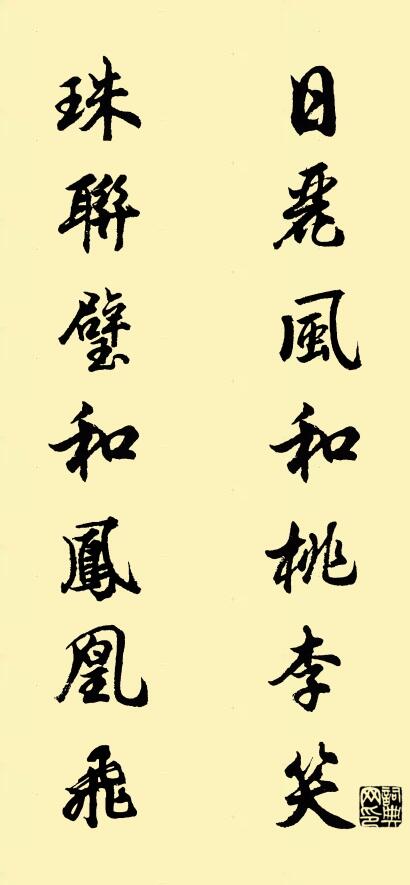 日麗風和桃李笑
珠聯璧和鳳凰飛
詞典
网印